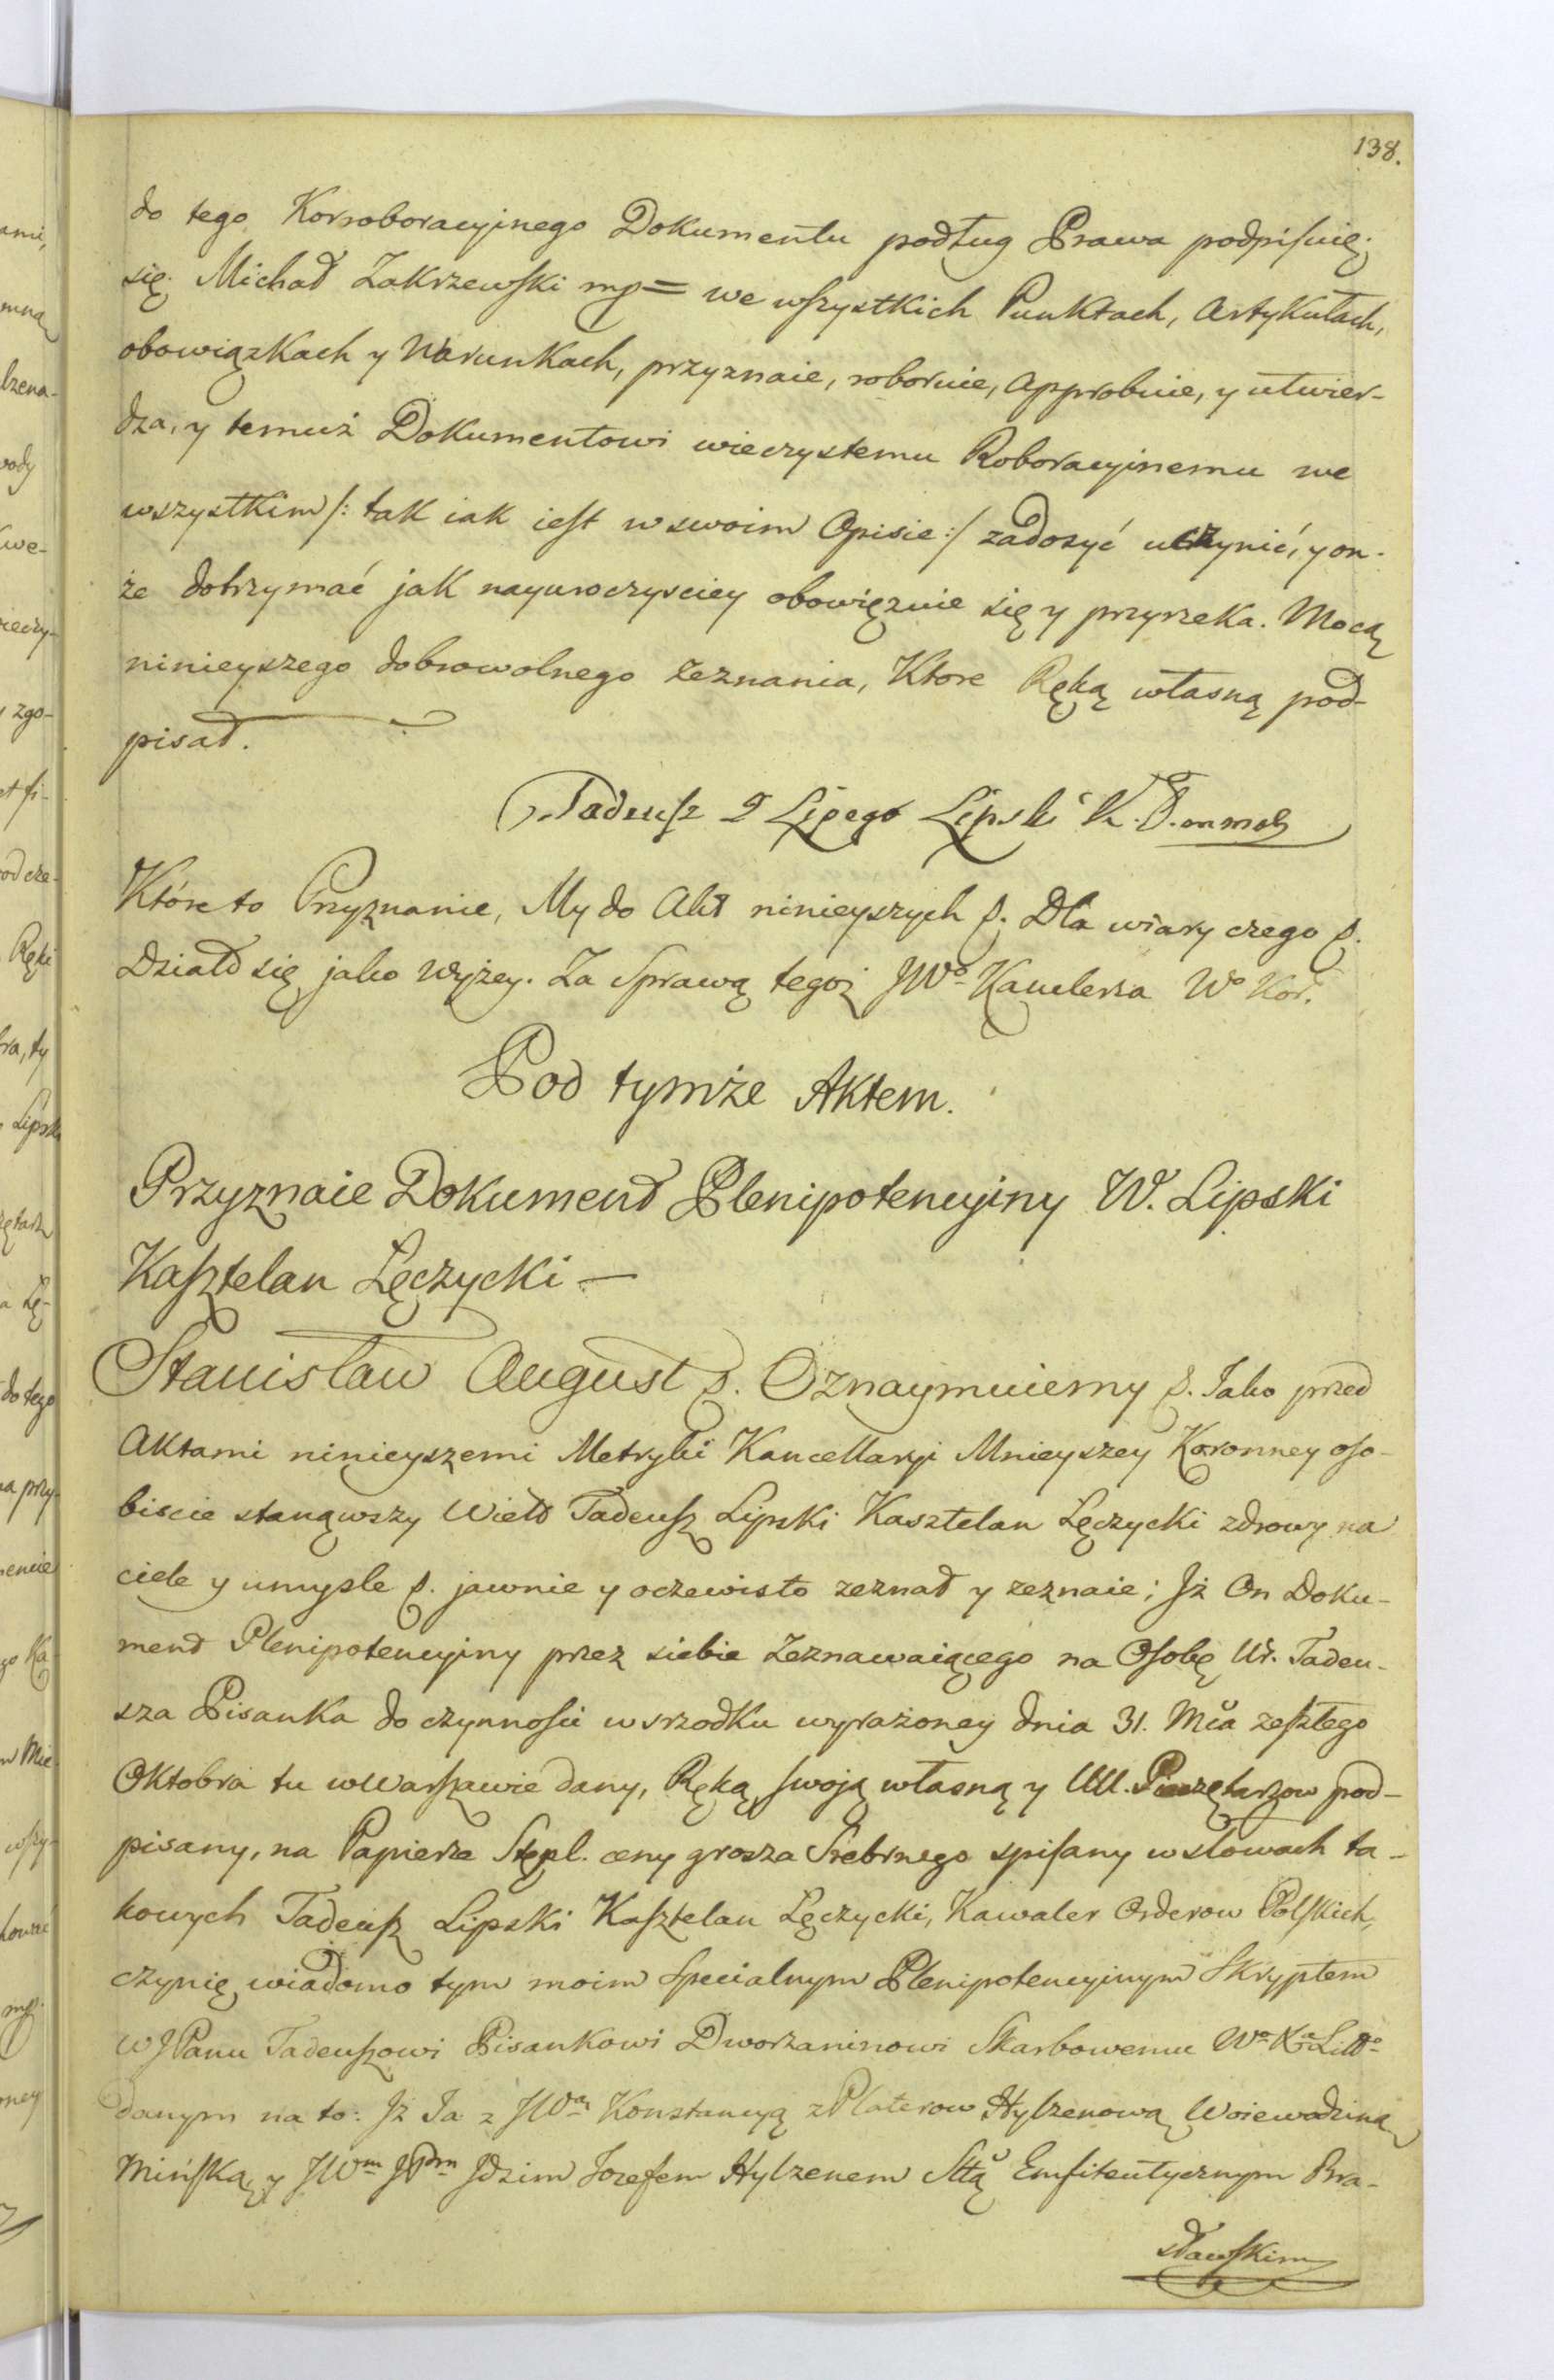 138.
do tego Korroboracyjnego Dokumentu podług Prawa podpisuię
się. Michał Zakrzewski mp= we wszystkich Punktach, Artykułach,
obowiązkach y Warunkach, przyznaie, roboruie, Approbuie, y utwier-
dza, y temuż Dokumentowi wieczystemu Roboracyjnemu we
wszystkim /: tak iak iest w swoim Opisie :/ zadosyć uczynić, y on-
że dotrzymać jak nayuroczysciey obowięzuie się y przyrzeka. Mocą
ninieyszego dobrowolnego zeznania, Ktore Ręką własną pod-
pisał.
Tadeusz Lipego Lipski K.
Które to Przyznanie, My do Akt ninieyszych p. Dla wiary czego p.
Działo się jako wyżey. Za Sprawą tegoż JWo Kanclerza Wo Kor.
Pod tymże Aktem.
Przyznaie Dokument Plenipotencyjny W. Lipski
Kasztelan Lęczycki —
Stanisław August p. Oznaymuiemy p. Jako przed
Aktami ninieyszemi Metryki Kancellaryi Mnieyszey Koronney oso-
biscie stanąwszy Wielo Tadeusz Lipski Kasztelan Lęczycki zdrowy na
ciele y umysle p. jawnie y oczewisto zeznał y zeznaie; Jż On Doku-
ment Plenipotencyjny przez siebie Zeznawaiącego na Osobę Ur. Tadeu-
sza Pisanka do czynnosci w srzodku wyrażoney dnia 31. Mca zeszłego
Oktobra tu w Warszawie dany, Ręką swoją własną y UU. Pieczętarzow pod-
pisany, na Papierze Stępl. ceny grosza Srebrnego spisany w słowach ta-
kowych Tadeusz Lipski Kasztelan Lęczycki, Kawaler Orderow Polskich,
czynię wiadomo tym moim Specialnym Plenipotencyinym Skryptem
W JPanu Tadeuszowi Pisankowi Dworzaninowi Skarbowemu Wo Xa Litto
danym na to: Jż Ja z JWą Konstancyą z Platerow Hylzenową Woiewodziną
Mińską y JWm JPm Jdzim Jozefem Hylzenem Sttą Emfiteutycznym Bra-
sławskim